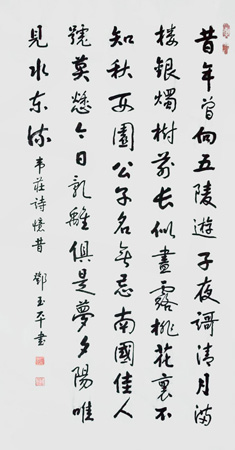 昔年曾向五陵遊子夜謌清月滿
楼银燭樹前长似晝露桃花裏不
知秋西園公子名无忌南國佳人
號莫愁今日乱離俱是夢夕陽唯
見水东流
韦莊詩憶昔 鄧玉平書